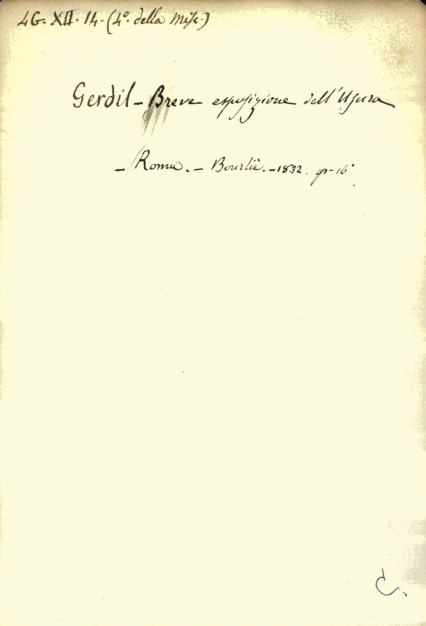 4G-XII-14-(4º. della Misc.)
Gerdil - Breve esposizione dell'Usura
- Roma. - Bourlié. - 1832. gr-16º.
C.